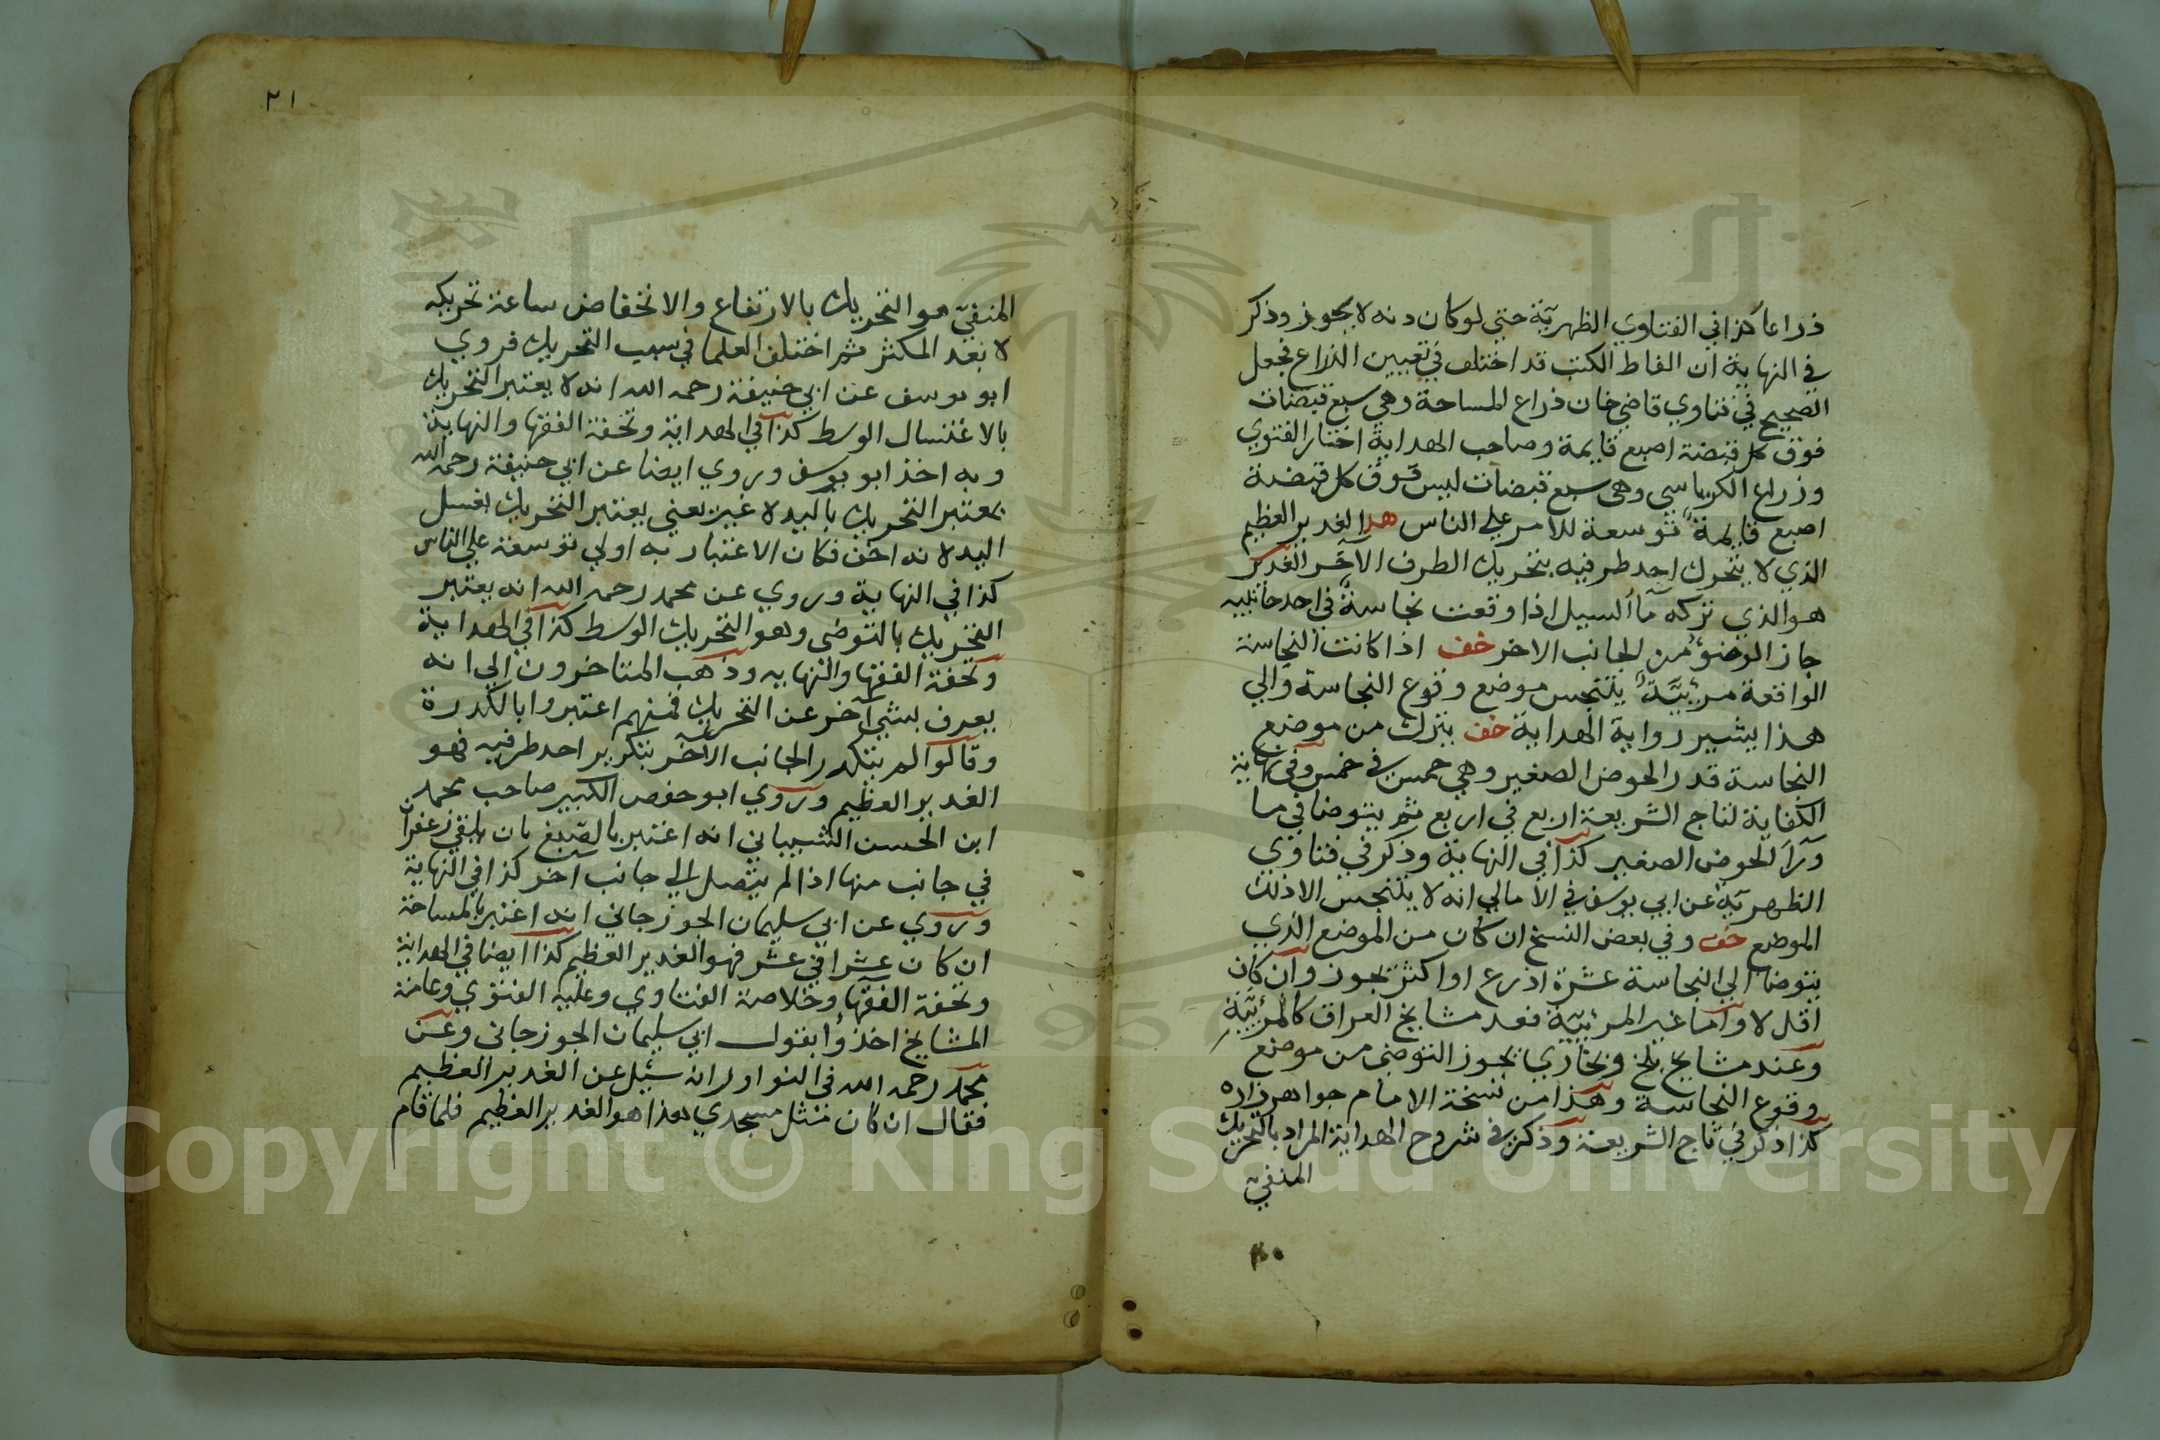 ذراعا كذا في الفتاوي الظهرية حتي لو كان دونه لا يجوز وذكر
في النهاية ان الفاظ الكتب قد اختلف في تعيين الذراع فجعل
الصحيح في فتاوي قاضي خان ذراع المساحة وهي سبع قبضات
فوق كل قبضة اصبع قايمة وصاحب الهداية اختار الفتوي
وذراع الكرباسي وهي سبع قبضات ليس فوق كل قبضة
اصبع قايمة توسعة للامر علي الناس هد الغدير العظيم
الذي لا يتحرك احد طرفيه بتحريك الطرف الآخر الغدير
هو الذي تركه ماء السيل اذا وقعت نجاسة في احد جانبيه
جاز الوضوء من الجانب الاخر خف اذا كانت النجاسة
الواقعة مرئية يتنجس موضع وقوع النجاسة والي
هذا يشير رواية الهداية خف يترك من موضع
النجاسة قدر الحوض الصغير وهي خمس في خمس وفي نهاية
الكفاية لتاج الشريعة اربع في اربع ثم يتوضا في ما
ورآء الحوض الصغير كذا في النهاية وذكر في فتاوي
الظهرية عن ابي يوسف في الامالي انه لا يتنجس الا ذلك
الموضع خف وفي بعض النسخ ان كان من الموضع الذي
يتوضا الي النجاسة عشرة اذرع او اكثر يجوز وان كان
اقل لا واما غير المرئية فعد مشايخ العراق كالمرئية
وعند مشايخ بلخ وبخاري يجوز التوضي من موضع
وقوع النجاسة وهذا من نسخة الامام جواهر زاده
كذا ذكر في تاج الشريعة وذكر في شروح الهداية المراد بالتحريك
المنفي
٢١
المنفي هو التحريك بالارتفاع والانخفاض ساعة تحريكه
لا بعد المكث ثم اختلف العلما في سبب التحريك فروي
ابو يوسف عن ابي حنيفة رحمه الله انه لا يعتبر التحريك
بالاغتسال الوسط كذا في الهداية وتحفة الفقها والنهاية
وبه اخذ ابو يوسف وروي ايضا عن ابي حنيفة رحمه الله
يعتبر التحريك باليد لا غير يعني يعتبر التحريك بغسل
اليد لانه اخف فكان الاعتبار به اولي توسعة علي الناس
كذا في النهاية وروي عن محمد رحمه الله انه يعتبر
التحريك بالتوضي وهو التحريك الوسط كذا في الهداية
وتحفة الفقها والنهايه وذهب المتاخرون الي انه
يعرف بشي آخر عن التحريك فمنهم اعتبروا بالكدرة
وقالوا لم يتكدر الجانب الآخر بتكدير احد طرفيه فهو
الغدير العظيم وروي ابو حفص الكبير صاحب محمد
ابن الحسن الشيباني انه اعتبر بالصبغ بان يلقي زعفران
في جانب منها اذا لم يتصل الي جانب آخر كذا في النهاية
وروي عن ابي سليمان الجوزجاني انه اعتبر بالمساحة
ان كان عشرا في عشر فهو الغدير العظيم كذا ايضا في الهداية
وتحفة الفقها وخلاصة الفتاوي وعليه الفتوي وعامة
المشايخ اخذوا بقول ابي سليمان الجوزجاني وعن
محمد رحمه الله في النوادر انه سئل عن الغدير العظيم
فقال ان كان مثل مسجدي هذا هو الغدير العظيم فلما قام
Copyright © King Saud University
1957